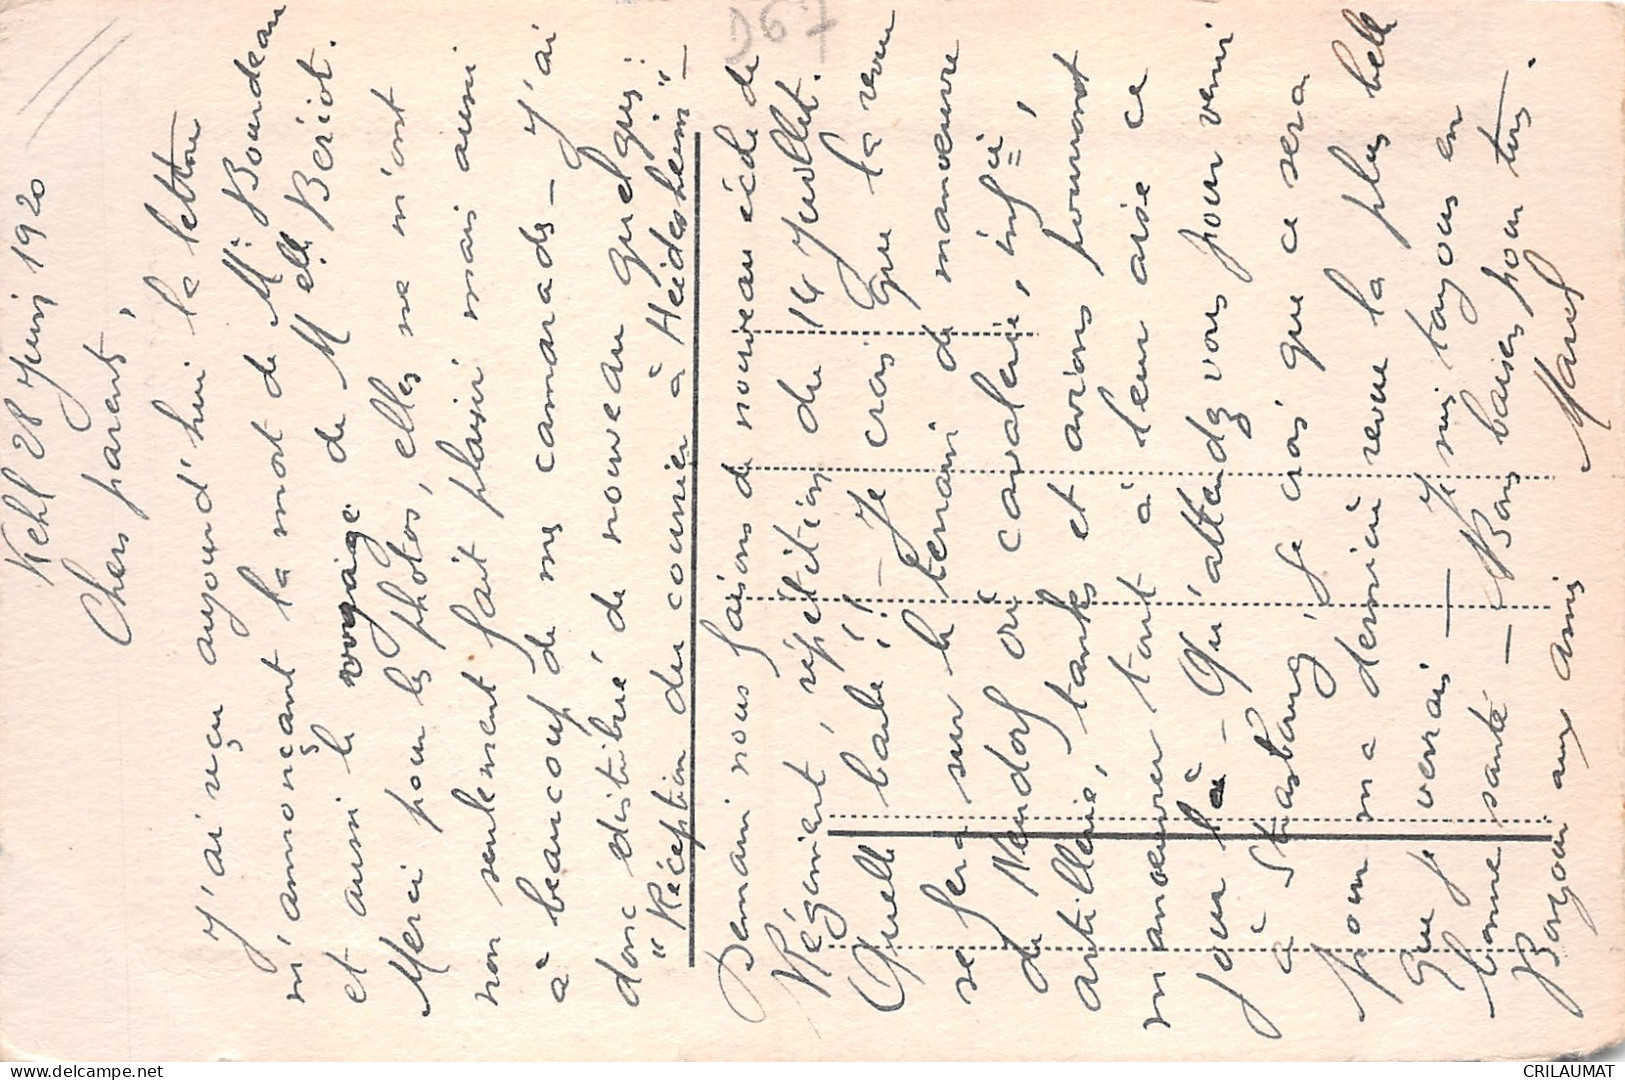 D67
Kehl 28 Juin 1920
Chers parents,
J'ai reçu aujourd'hui la lettre
m'annonçant la mort de Mr Bourdeau
et aussi le voyage de Melle Beriot.
Merci pour les photos, elles ne m'ont
non seulement fait plaisir mais aussi
à beaucoup de mes camarades - J'ai
donc distribué de nouveau quelques :
"Réception du courrier à Heidesheim" -
Demain nous faisons de nouveau école de
Régiment, répétition du 14 Juillet.
Quelle barbe !! - Je crois que la revue
se fera sur le terrain de manœuvre
du Neudorf où cavalerie, infie,
artillerie, tanks et avions pourront
manœuvrer tout à leur aise ce
jour là - Qu'attendez vous pour venir
à Strasbourg, je crois que ce sera
pour ma dernière revue la plus belle
que je verrai - Je suis toujours en
bonne santé - Bons baisers pour tous.
Bonjour aux amis
Marcel
CRILAUMAT